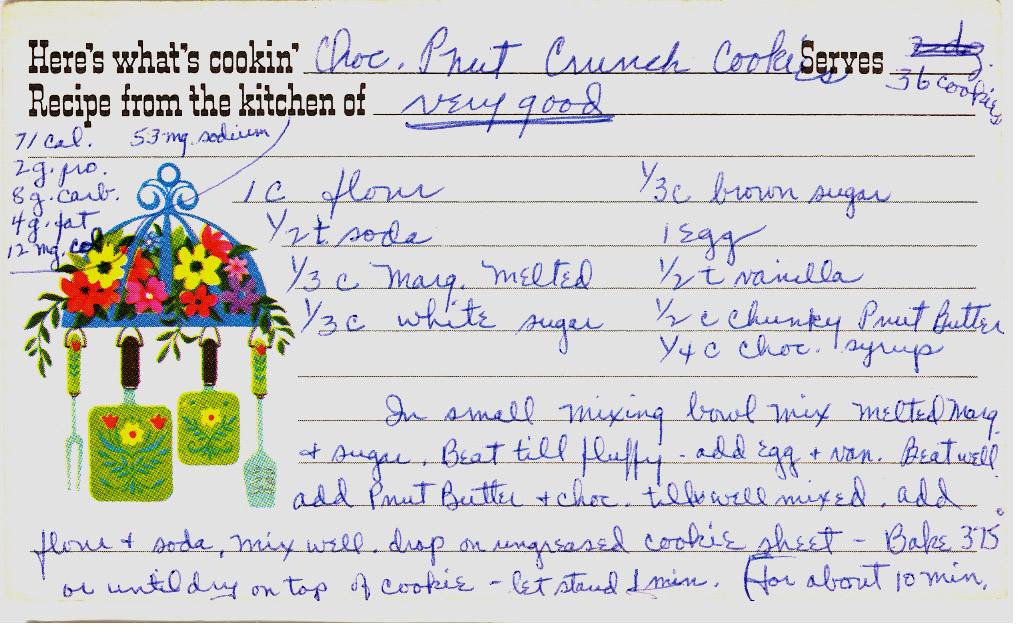 Here's what's cookin' Choc. Pnut Crunch Cookies Serves 2 dz.
36 cookies
Recipe from the kitchen of very good
71 cal. 53 mg. sodium
2 g. pro.
8 g. carb.
4 g. fat
12 mg. col
1 c flour 1/3 c brown sugar
1/2 t. soda 1 Egg
1/3 c Marg. Melted 1/2 t vanilla
1/3 c white sugar 1/2 c Chunky Pnut Butter
1/4 c choc. syrup
In small mixing bowl mix melted Marg.
& sugar. Beat till fluffy - add Egg + van. Beat well
add Pnut Butter + choc. till well mixed. add
flour + soda, mix well. drop on ungreased cookie sheet - Bake 375°
or until dry on top of cookie - let stand 1 min. (for about 10 min.